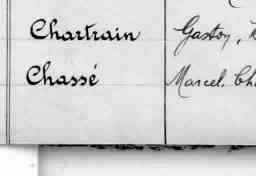 Chartrain Gaston,
Chassé Marcel,